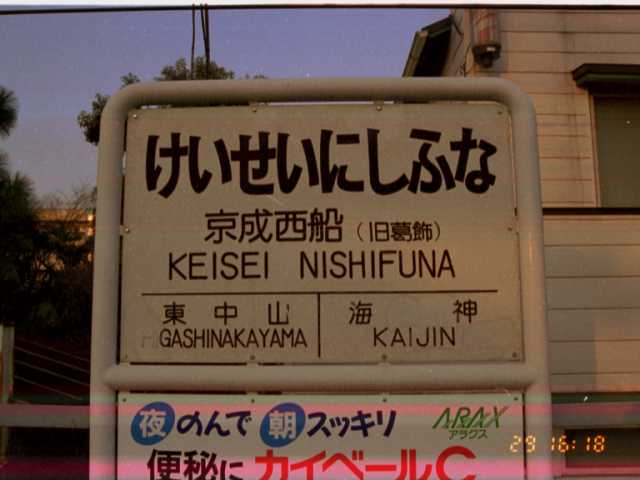 けいせいにしふな
京成西船（旧葛飾）
KEISEI NISHIFUNA
東中山 海神
HIGASHINAKAYAMA KAIJIN
夜のんで朝スッキリ ARAX
アラクス
便秘にカイベールC
29 16:18